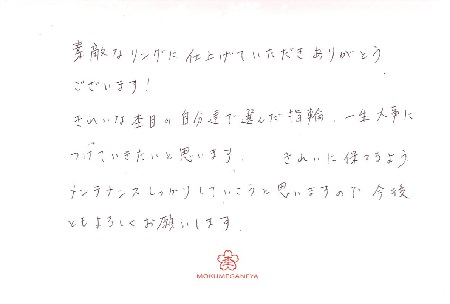 素敵なリングに仕上げていただきありがとう
ございます!
きれいな杢目の自分達で選んだ指輪、一生大事に
つけていきたいと思います。 きれいに保てるよう
メンテナンスしっかりしていこうと思いますので今後
ともよろしくお願いします。
MOKUMEGANEYA